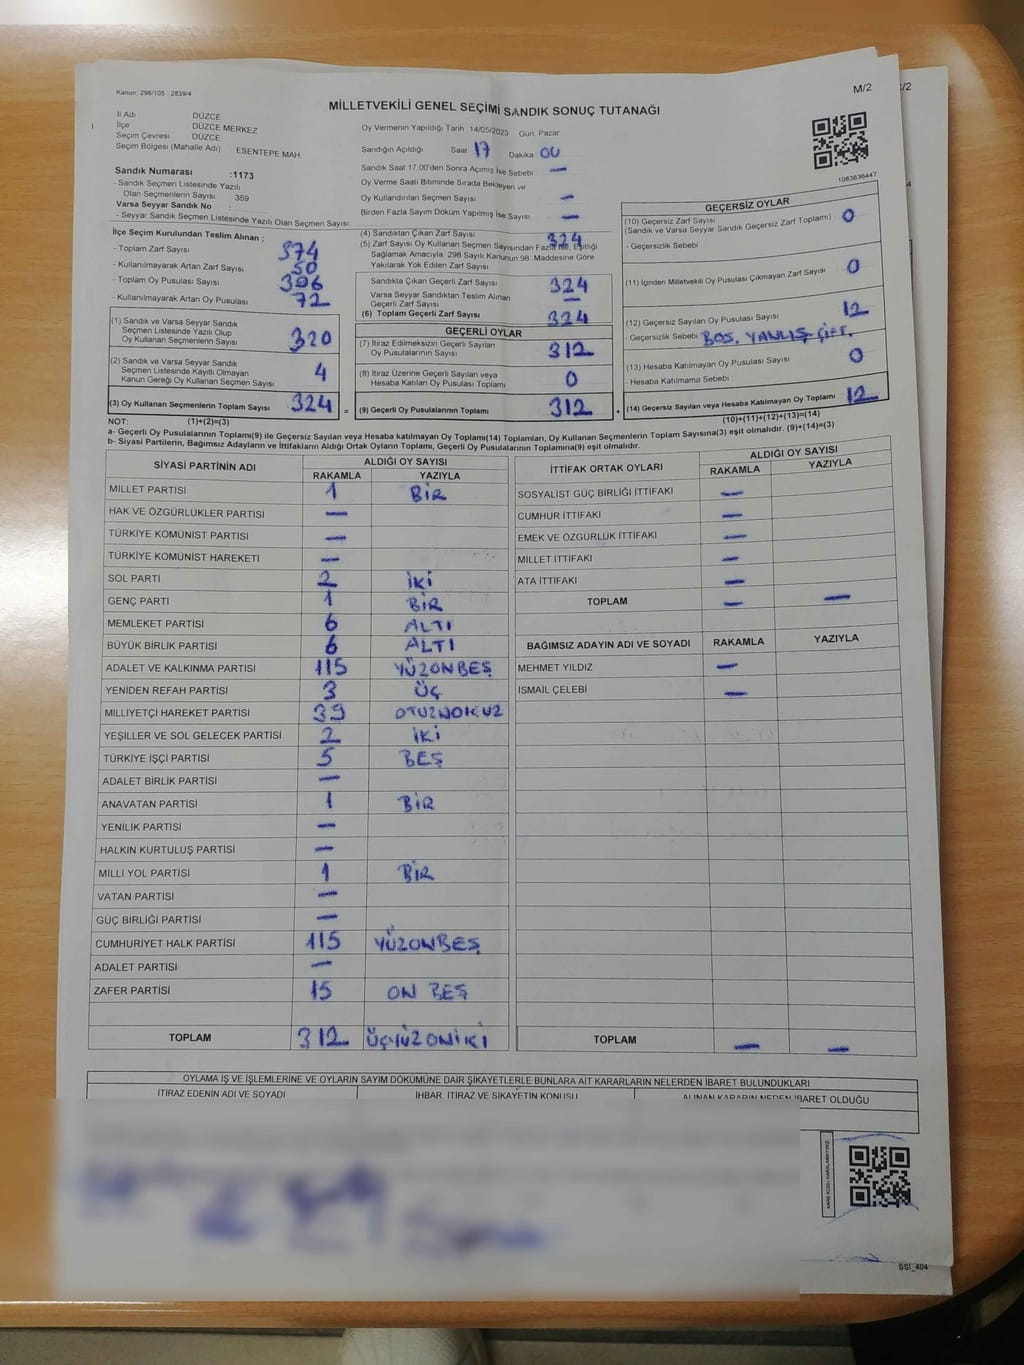 Kanun; 298/105 : 2839/4
M/2
MİLLETVEKİLİ GENEL SEÇİMİ SANDIK SONUÇ TUTANAĞI
İl Adı DÜZCE
İlçe DÜZCE MERKEZ
Seçim Çevresi DÜZCE
Seçim Bölgesi (Mahalle Adı) ESENTEPE MAH
Oy Vermenin Yapıldığı Tarih 14/05/2023 Gün: Pazar
Sandığın Açıldığı Saat 17 Dakika : 00
Sandık Saat 17:00'den Sonra Açımış İse Sebebi —
Oy Verme Saati Bitiminde Sırada Bekleyen ve
Oy Kullandırılan Seçmen Sayısı —
Birden Fazla Sayım Döküm Yapılmış İse Sayısı —
1083636447
Sandık Numarası :1173
- Sandık Seçmen Listesinde Yazılı
Olan Seçmenlerin Sayısı 359
Varsa Seyyar Sandık No :
- Seyyar Sandık Seçmen Listesinde Yazılı Olan Seçmen Sayısı
İlçe Seçim Kurulundan Teslim Alınan ;
- Toplam Zarf Sayısı 374
- Kullanılmayarak Artan Zarf Sayısı 50
- Toplam Oy Pusulası Sayısı 396
- Kullanılmayarak Artan Oy Pusulası 72
(1) Sandık ve Varsa Seyyar Sandık
Seçmen Listesinde Yazılı Olup
Oy Kullanan Seçmenlerin Sayısı 320
(2) Sandık ve Varsa Seyyar Sandık
Seçmen Listesinde Kayıtlı Olmayan
Kanun Gereği Oy Kullanan Seçmen Sayısı 4
(3) Oy Kullanan Seçmenlerin Toplam Sayısı 324
(1)+(2)=(3)
(4) Sandıktan Çıkan Zarf Sayısı 324
(5) Zarf Sayısı Oy Kullanan Seçmen Sayısından Fazla İse, Eşitliği
Sağlamak Amacıyla, 298 Sayılı Kanunun 98. Maddesine Göre
Yakılarak Yok Edilen Zarf Sayısı
Sandıkta Çıkan Geçerli Zarf Sayısı 324
Varsa Seyyar Sandıktan Teslim Alınan
Geçerli Zarf Sayısı —
(6) Toplam Geçerli Zarf Sayısı 324
GEÇERLİ OYLAR
(7) İtiraz Edilmeksizin Geçerli Sayılan
Oy Pusulalarının Sayısı 312
(8) İtiraz Üzerine Geçerli Sayılan veya
Hesaba Katılan Oy Pusulası Toplamı 0
= (9) Geçerli Oy Pusulalarının Toplamı 312 +
GEÇERSİZ OYLAR
(10) Geçersiz Zarf Sayısı
(Sandık ve Varsa Seyyar Sandık Geçersiz Zarf Toplamı) 0
- Geçersizlik Sebebi
(11) İçinden Milletvekili Oy Pusulası Çıkmayan Zarf Sayısı 0
(12) Geçersiz Sayılan Oy Pusulası Sayısı 12
- Geçersizlik Sebebi BOŞ, YANLIŞ, ÇİFT.
(13) Hesaba Katılmayan Oy Pusulası Sayısı 0
- Hesaba Katılmama Sebebi
(14) Geçersiz Sayılan veya Hesaba Katılmayan Oy Toplamı : 12
(10)+(11)+(12)+(13)=(14)
NOT:
a- Geçerli Oy Pusulalarının Toplamı(9) ile Geçersiz Sayılan veya Hesaba katılmayan Oy Toplamı(14) Toplamları, Oy Kullanan Seçmenlerin Toplam Sayısına(3) eşit olmalıdır. (9)+(14)=(3)
b- Siyasi Partilerin, Bağımsız Adayların ve İttifakların Aldığı Ortak Oyların Toplamı, Geçerli Oy Pusulalarının Toplamına(9) eşit olmalıdır.
SİYASİ PARTİNİN ADI ALDIĞI OY SAYISI
RAKAMLA YAZIYLA
MİLLET PARTİSİ 1 BİR
HAK VE ÖZGÜRLÜKLER PARTİSİ —
TÜRKİYE KOMÜNİST PARTİSİ —
TÜRKİYE KOMÜNİST HAREKETİ —
SOL PARTİ 2 İKİ
GENÇ PARTİ 1 BİR
MEMLEKET PARTİSİ 6 ALTI
BÜYÜK BİRLİK PARTİSİ 6 ALTI
ADALET VE KALKINMA PARTİSİ 115 YÜZONBEŞ
YENİDEN REFAH PARTİSİ 3 ÜÇ
MİLLİYETÇİ HAREKET PARTİSİ 39 OTUZDOKUZ
YEŞİLLER VE SOL GELECEK PARTİSİ 2 İKİ
TÜRKİYE İŞÇİ PARTİSİ 5 BEŞ
ADALET BİRLİK PARTİSİ —
ANAVATAN PARTİSİ 1 BİR
YENİLİK PARTİSİ —
HALKIN KURTULUŞ PARTİSİ —
MİLLİ YOL PARTİSİ 1 BİR
VATAN PARTİSİ —
GÜÇ BİRLİĞİ PARTİSİ —
CUMHURİYET HALK PARTİSİ 115 YÜZONBEŞ
ADALET PARTİSİ —
ZAFER PARTİSİ 15 ON BEŞ
TOPLAM 312 ÜÇYÜZONİKİ
İTTİFAK ORTAK OYLARI ALDIĞI OY SAYISI
RAKAMLA YAZIYLA
SOSYALİST GÜÇ BİRLİĞİ İTTİFAKI —
CUMHUR İTTİFAKI —
EMEK VE ÖZGÜRLÜK İTTİFAKI —
MİLLET İTTİFAKI —
ATA İTTİFAKI —
TOPLAM — —
BAĞIMSIZ ADAYIN ADI VE SOYADI RAKAMLA YAZIYLA
MEHMET YILDIZ —
İSMAİL ÇELEBİ —
TOPLAM — —
OYLAMA İŞ VE İŞLEMLERİNE VE OYLARIN SAYIM DÖKÜMÜNE DAİR ŞİKAYETLERLE BUNLARA AİT KARARLARIN NELERDEN İBARET BULUNDUKLARI
İTİRAZ EDENİN ADI VE SOYADI İHBAR, İTİRAZ VE ŞİKAYETİN KONUSU ALINAN KARARIN NEDEN İBARET OLDUĞU
SSİ_404